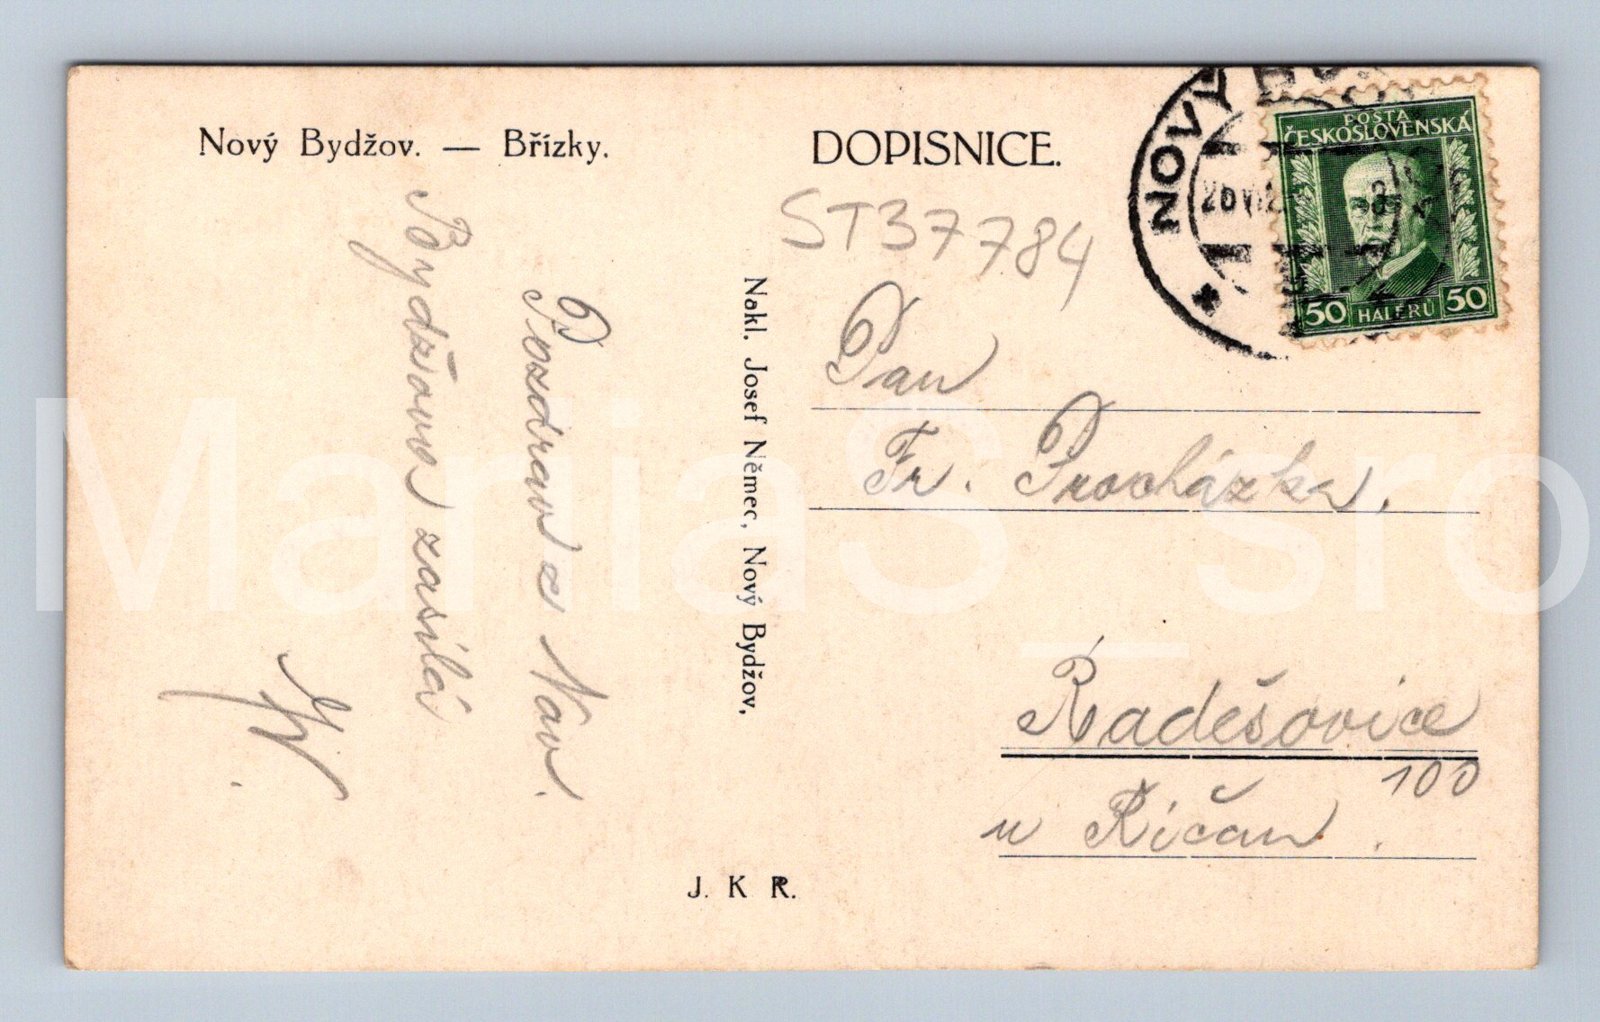 Nový Bydžov. — Břízky.
DOPISNICE.
ST37784
NOVÝ
POŠTA
ČESKOSLOVENSKÁ
50 HALÉŘŮ 50
Pozdrav z Nov.
Bydžova zasílá
Nakl. Josef Němec, Nový Bydžov,
Pan
Fr. Procházka.
Radešovice
100
u Říčan.
J. K R.
MariiaS_sro